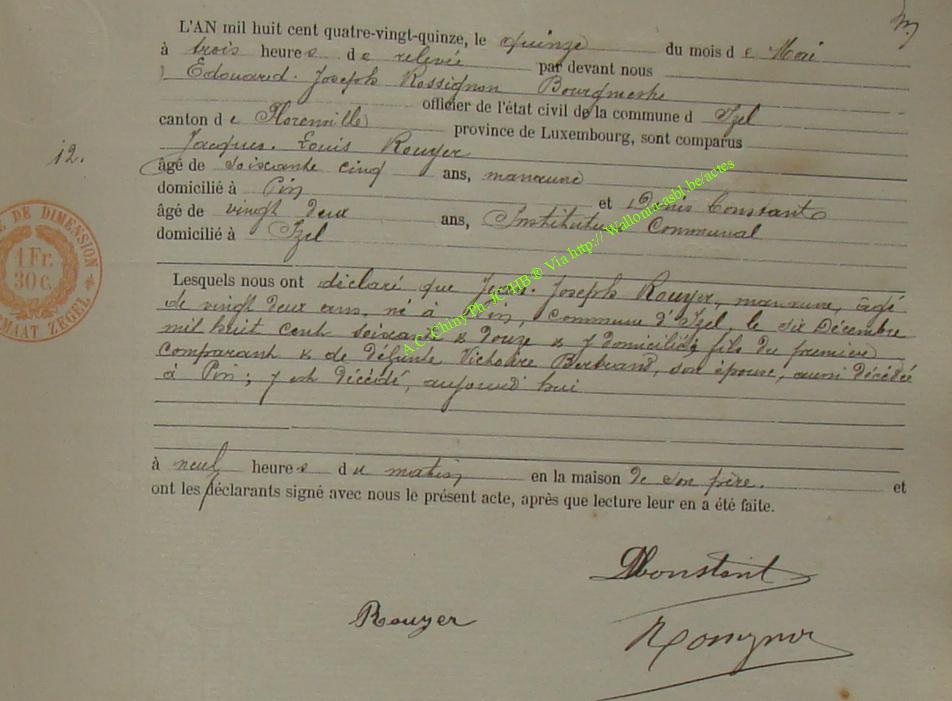 L'AN mil huit cent quatre-vingt-quinze, le quinze du mois de Mai
à trois heures de relevée par devant nous
Edouard Joseph Rossignon Bourgmestre
officier de l'état civil de la commune d Izel
canton de Florenville province de Luxembourg, sont comparus
Jacques Louis Rouyer
12.
âgé de soixante cinq ans, manœuvre
domicilié à Pin et Denis Constant
âgé de vingt deux ans, Instituteur Communal
domicilié à Izel
TIMBRE DE DIMENSION
1 Fr.
30 C.
MAAT ZEGEL
Lesquels nous ont déclaré que Jean Joseph Rouyer, manœuvre, âgé
de vingt deux ans, né à Pin, Commune d'Izel, le dix Décembre
mil huit cent soixante & douze & y domicilié, fils du premier
comparant & de défunte Victoire Bertrand, son épouse, aussi décédée
à Pin; y est décédé, aujourd'hui
à neuf heures du matin en la maison de son père. et
ont les déclarants signé avec nous le présent acte, après que lecture leur en a été faite.
A.C. Chiny Ph. JC HB ® Via http://Wallonia-asbl.be/actes
DConstant
Rouyer
Rossignon